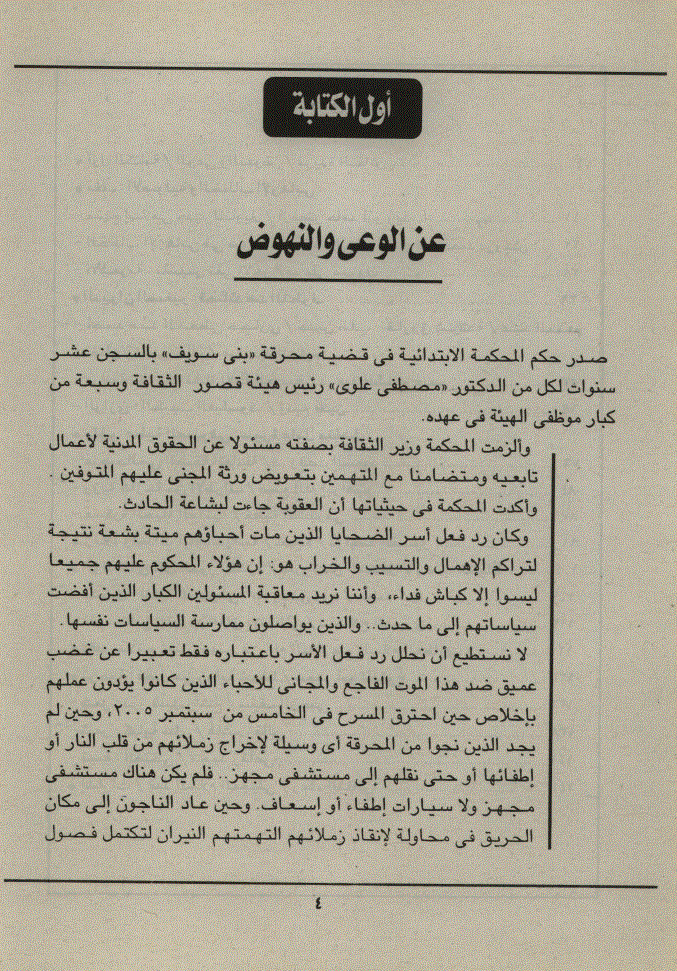 أول الكتابة
عن الوعى والنهوض
صدر حكم المحكمة الابتدائية فى قضية محرقة «بنى سويف» بالسجن عشر
سنوات لكل من الدكتور «مصطفى علوى» رئيس هيئة قصور الثقافة وسبعة من
كبار موظفى الهيئة فى عهده.
وألزمت المحكمة وزير الثقافة بصفته مسئولا عن الحقوق المدنية لأعمال
تابعيه ومتضامنا مع المتهمين بتعويض ورثة المجنى عليهم المتوفين .
وأكدت المحكمة فى حيثياتها أن العقوبة جاءت لبشاعة الحادث.
وكان رد فعل أسر الضحايا الذين مات أحباؤهم ميتة بشعة نتيجة
لتراكم الإهمال والتسيب والخراب هو: إن هؤلاء المحكوم عليهم جميعا
ليسوا إلا كباش فداء، وأننا نريد معاقبة المسئولين الكبار الذين أفضت
سياساتهم إلى ما حدث.. والذين يواصلون ممارسة السياسات نفسها.
لا نستطيع أن نحلل رد فعل الأسر باعتباره فقط تعبيرا عن غضب
عميق ضد هذا الموت الفاجع والمجانى للأحباء الذين كانوا يؤدون عملهم
بإخلاص حين احترق المسرح فى الخامس من سبتمبر ٢٠٠٥، وحين لم
يجد الذين نجوا من المحرقة أى وسيلة لإخراج زملائهم من قلب النار أو
إطفائها أو حتى نقلهم إلى مستشفى مجهز.. فلم يكن هناك مستشفى
مجهز ولا سيارات إطفاء أو إسعاف. وحين عاد الناجون إلى مكان
الحريق فى محاولة لإنقاذ زملائهم التهمتهم النيران لتكتمل فصول
٤